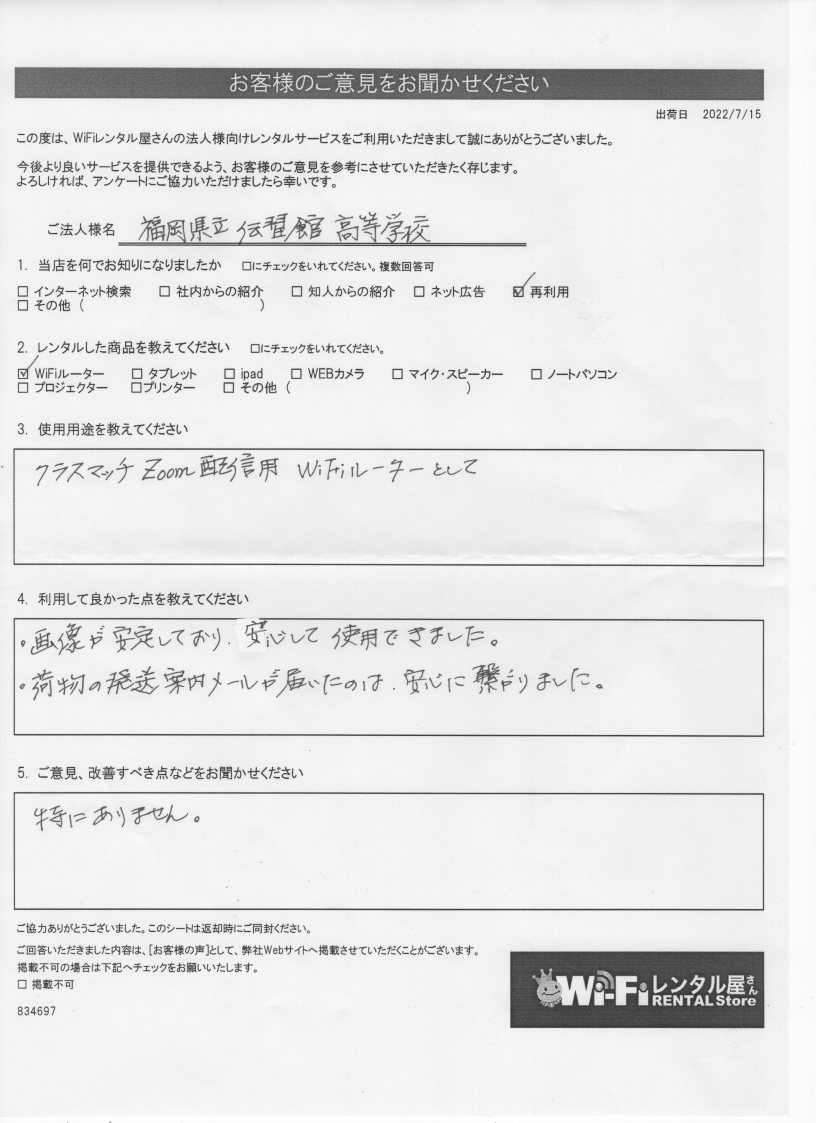 お客様のご意見をお聞かせください
出荷日 2022/7/15
この度は、WiFiレンタル屋さんの法人様向けレンタルサービスをご利用いただきまして誠にありがとうございました。
今後より良いサービスを提供できるよう、お客様のご意見を参考にさせていただきたく存じます。
よろしければ、アンケートにご協力いただけましたら幸いです。
ご法人様名 福岡県立伝習館高等学校
1. 当店を何でお知りになりましたか □にチェックをいれてください。複数回答可
□ インターネット検索 □ 社内からの紹介 □ 知人からの紹介 □ ネット広告 ☑ 再利用
□ その他 ( )
2. レンタルした商品を教えてください □にチェックをいれてください。
☑ WiFiルーター □ タブレット □ ipad □ WEBカメラ □ マイク・スピーカー □ ノートパソコン
□ プロジェクター □プリンター □ その他 ( )
3. 使用用途を教えてください
クラスマッチ Zoom配信用 WiFiルーターとして
4. 利用して良かった点を教えてください
・画像が安定しており、安心して使用できました。
・荷物の発送案内メールが届いたのは、安心に繋がりました。
5. ご意見、改善すべき点などをお聞かせください
特にありません。
ご協力ありがとうございました。このシートは返却時にご同封ください。
ご回答いただきました内容は、[お客様の声]として、弊社Webサイトへ掲載させていただくことがございます。
掲載不可の場合は下記へチェックをお願いいたします。
□ 掲載不可
834697
Wi-Fiレンタル屋さん
RENTAL Store